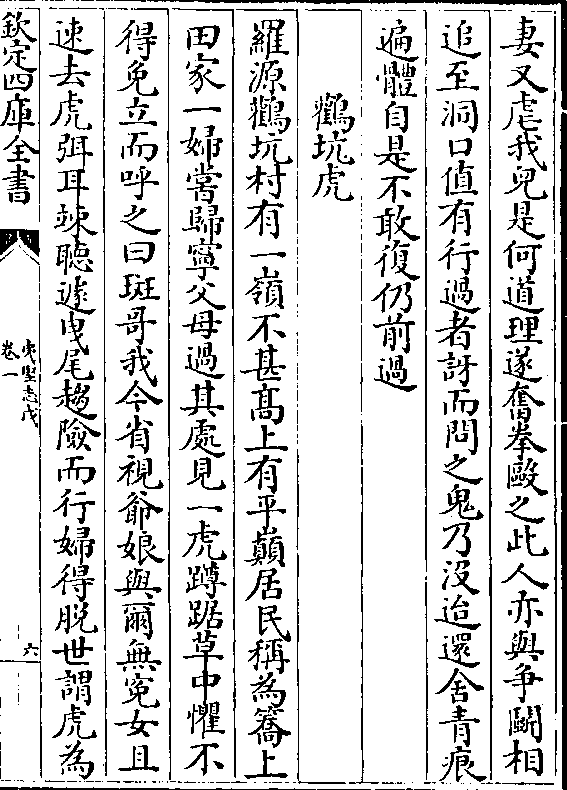 妻又虐我兒是何道理遂奮拳毆之此人亦與爭鬬相
追至洞口值有行過者訝而問之鬼乃没迨還舍青痕
遍體自是不敢復仍前過
鸛坑虎
羅源鸛坑村有一嶺不甚髙上有平巔居民稱為簥上
田家一婦嘗歸寧父母過其處見一虎蹲踞草中懼不
得免立而呼之曰斑哥我今省視爺娘與爾無寃女且
速去虎弭耳竦聽遽曳尾趨險而行婦得脱世謂虎為
欽定四庫全書
夷堅志戊
卷一
六